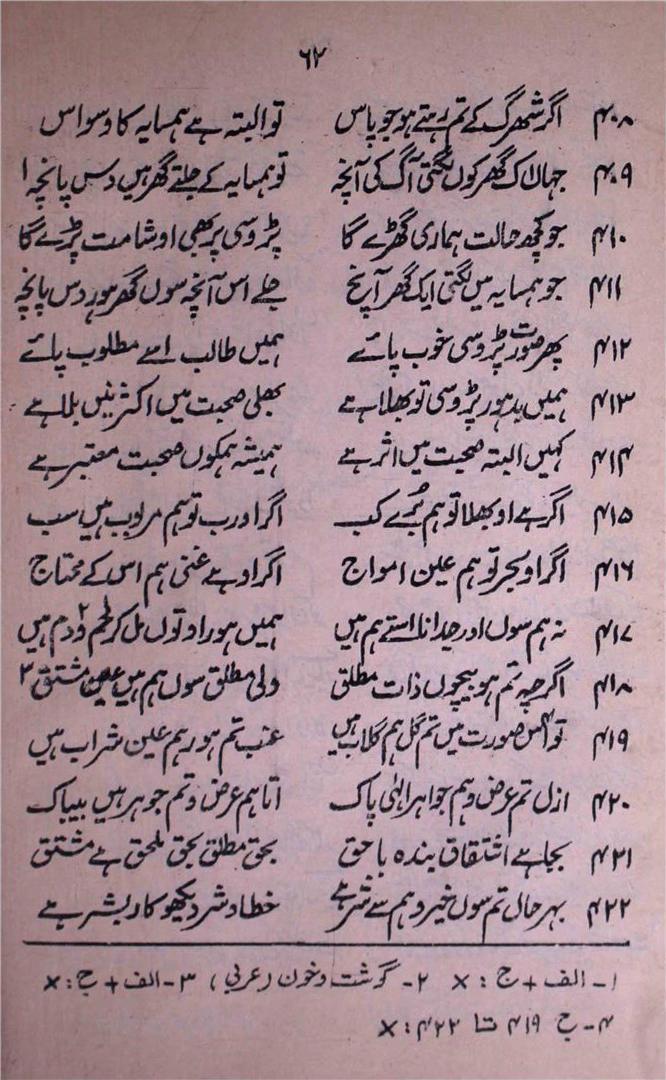 ۶۲
۴۰۸ اگر شہرگ کے تم رہتے ہو جو پاس تو البتہ ہے ہمسایہ کا وسواس
۴۰۹ جہاں اک گھر کوں لگتی آگ کی آنچہ تو ہمسایہ کے جلتے گھر ہیں دس پانچہ ۱
۴۱۰ جو کچھ حالت ہماری گھڑے گا پڑوسی پر بھی او شامت پڑے گا
۴۱۱ جو ہمسایہ میں لگتی ایک گھر آنچ جلے اس آنچہ سوں گھر ہور دس پانچہ
۴۱۲ پھر صورت پڑوسی خوب پائے ہمیں طالب اسے مطلوب پائے
۴۱۳ ہمیں بد ہور پڑوسی تو بھلا ہے بھلی صحبت میں اکثر نیں بلا ہے
۴۱۴ کہیں البتہ صحبت میں اثر ہے ہمیشہ ہمکوں صحبت معتبر ہے
۴۱۵ اگر ہے او بھلا تو ہم بُرے کب اگر او رب تو ہم مربوب ہیں سب
۴۱۶ اگر او بحر تو ہم عین امواج اگر او ہے غنی ہم اس کے محتاج
۴۱۷ نہ ہم سوں اور جدا نا استے ہم ہیں ہمیں ہور او توں مل کر لحم ۲ و دم ہیں
۴۱۸ اگرچہ تم ہو بیچوں ذات مطلق ولی مطلق سوں ہم ہیں عین مشتق ۳
۴۱۹ تو ۴ اس صورت میں تم گل ہم گلاب ہیں عنب تم ہور ہم عین شراب ہیں
۴۲۰ ازل تم عرض و ہم جواہر الٰہی پاک اتا ہم عرض و تم جوہر ہیں بیباک
۴۲۱ بجا ہے اشتقاق بندہ با حق بحق مطلق بحق ملحق ہے مشتق
۴۲۲ بہر حال تم سوں خیر و ہم سے شر ہے خطا و شر دیکھو کار بشر ہے
۱۔ الف + ج : × ۲۔ گوشت و خون (عربی) ۳۔ الف + ج : ×
۴۔ ج ۴۱۹ تا ۴۲۲ : ×